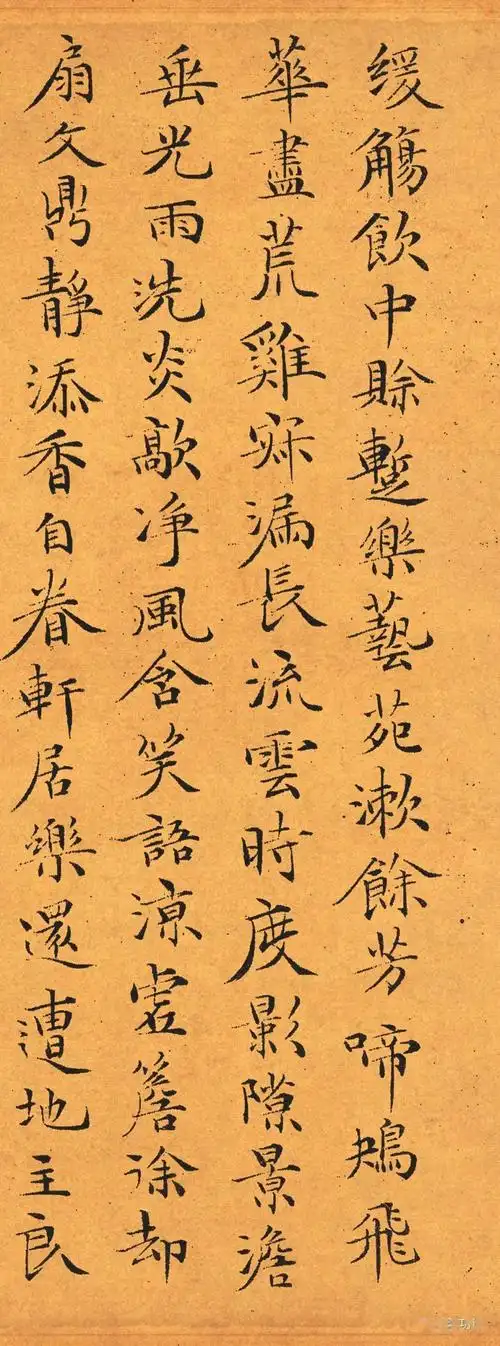 缓觴飲中賒蹔樂藝苑漱餘芳啼鴂飛
華盡荒雞寐漏長流雲時度影隙景澹
垂光雨洗炎歊净風含笑語涼虛簷徐却
扇文鼎靜添香自眷軒居樂還遭地主良